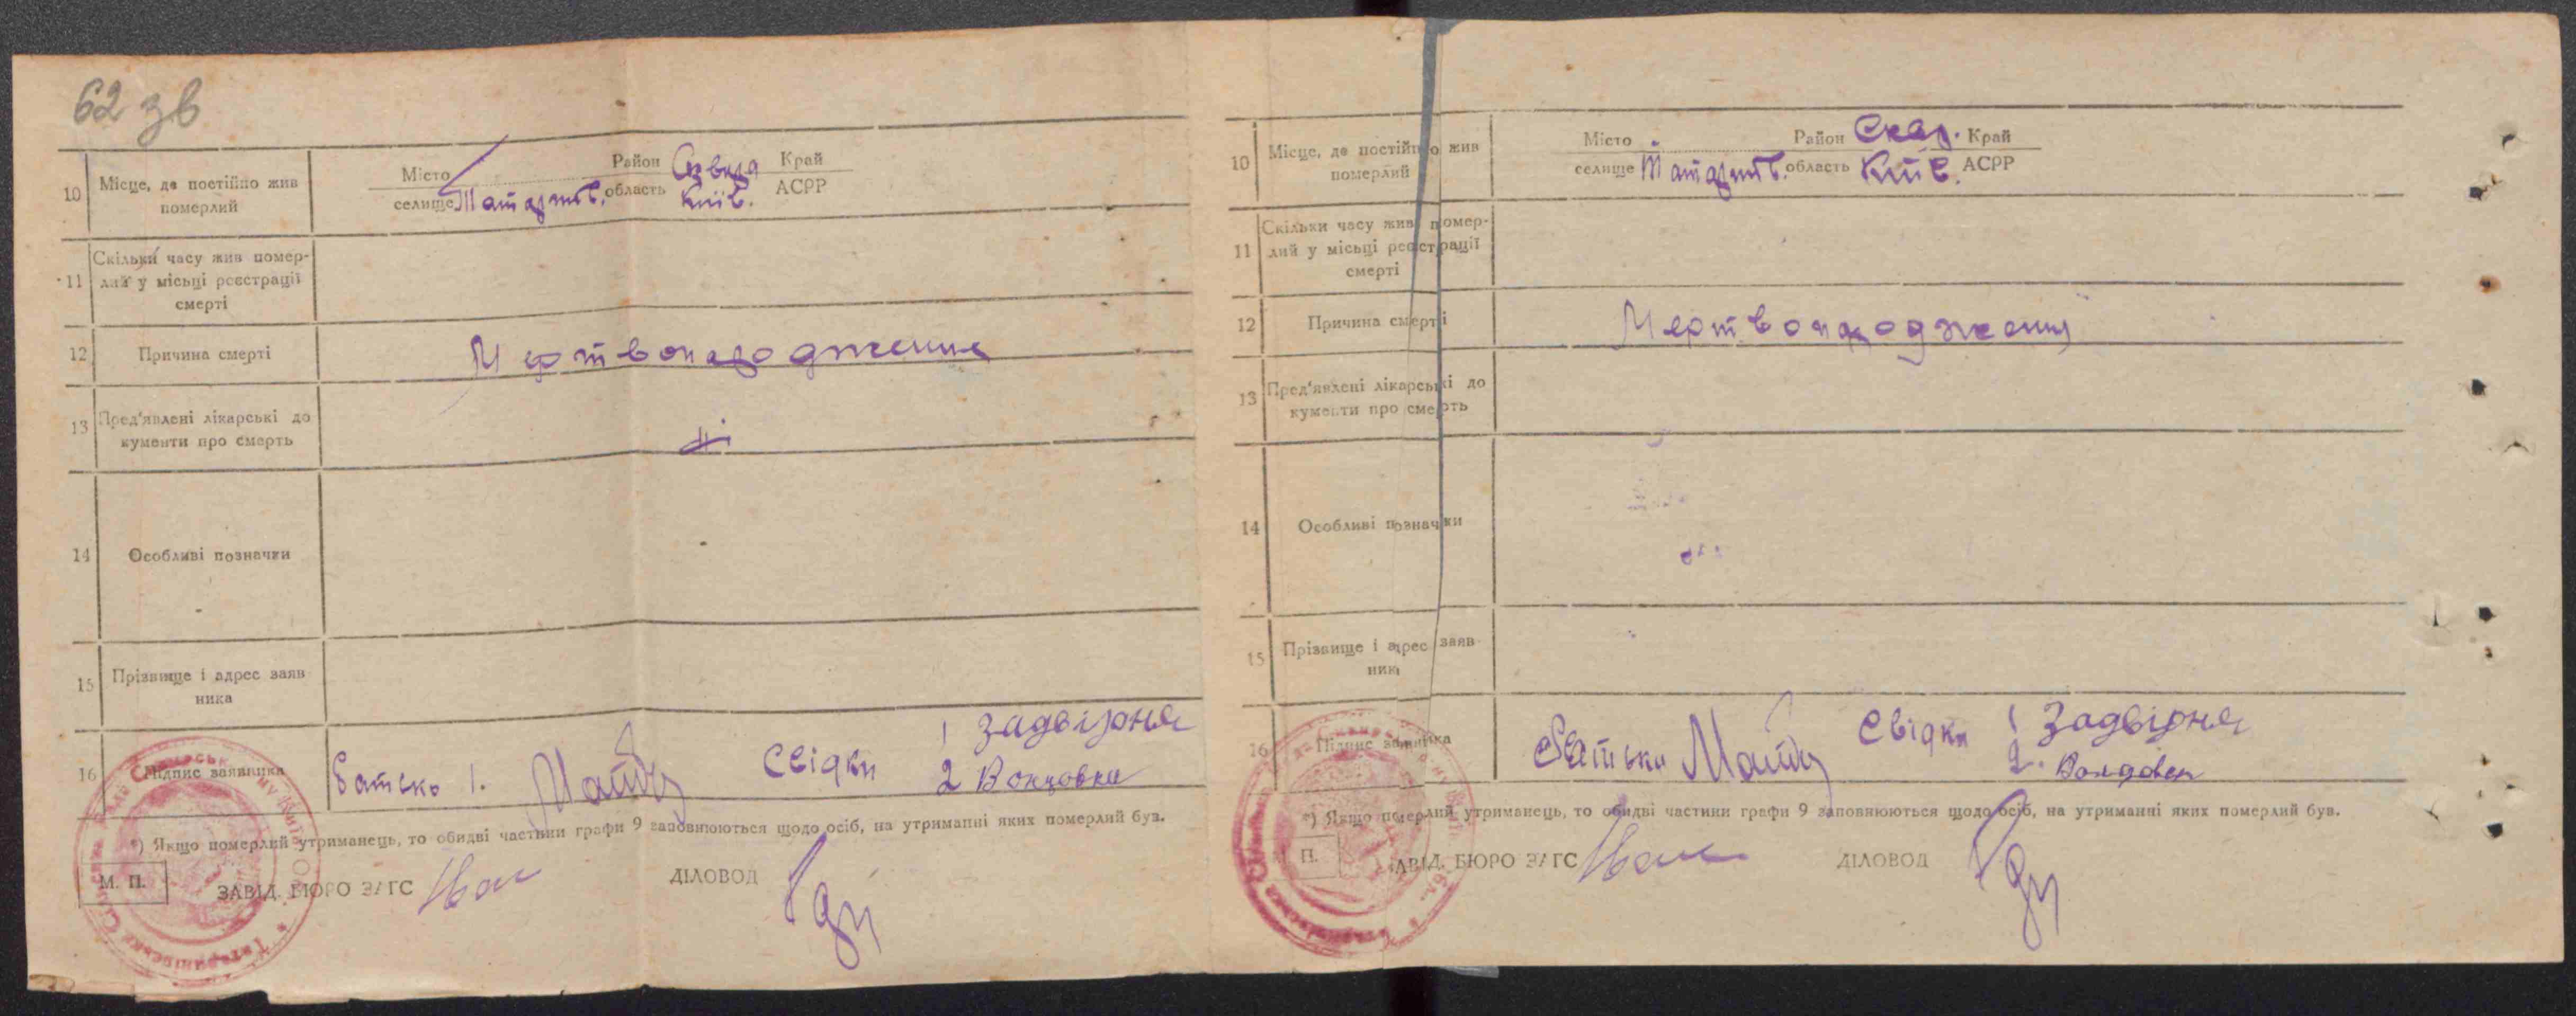 62 зв
10 Місце, де постійно жив померлий
Місто
селище Татаринів.
Район Сквира
область Київ.
Край
АСРР
11 Скільки часу жив помер-
лий у місьці реєстрації
смерті
12 Причина смерті Мертвонародження
13 Пред'явлені лікарські до
кументи про смерть ні
14 Особливі позначки
15 Прізвище і адрес заяв
ника
16 Підпис заявника Батько 1. Свідки 1 Задвірня
2
*) Якщо померлий утриманець, то обидві частини графи 9 заповнюються щодо осіб, на утриманні яких померлий був.
М. П. ЗАВІД. БЮРО ЗАГС ДІЛОВОД
10 Місце, де постійно жив
померлий
Місто
селище Татаринів.
Район Сквир.
область Київ.
Край
АСРР
11 Скільки часу жив помер-
лий у місьці реєстрації
смерті
12 Причина смерті Мертвонародження
13 Пред'явлені лікарські до
кументи про смерть
14 Особливі позначки
15 Прізвище і адрес заяв
ника
16 Підпис заявника Батько Свідки 1 Задвірня
2.
*) Якщо померлий утриманець, то обидві частини графи 9 заповнюються щодо осіб, на утриманні яких померлий був.
М. П. ЗАВІД. БЮРО ЗАГС ДІЛОВОД